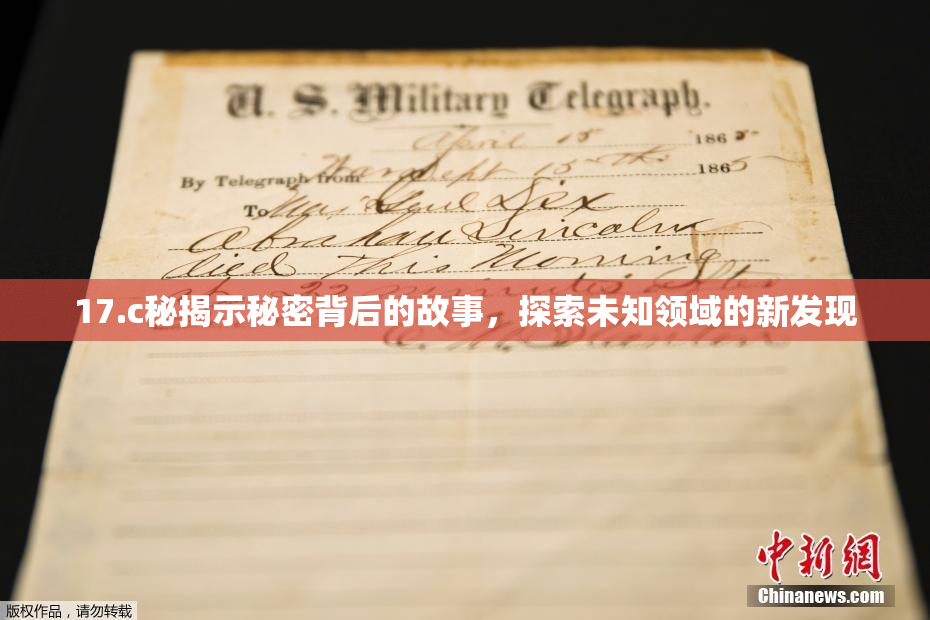 U. S. Military Telegraph.
April 15 1865
By Telegraph from War Dept 15th 1865
To Maj Genl Dix
Abraham Lincoln
died This Morning
at 22 minutes after
17.c秘揭示秘密背后的故事，探索未知领域的新发现
中新网
Chinanews.com
版权作品，请勿转载